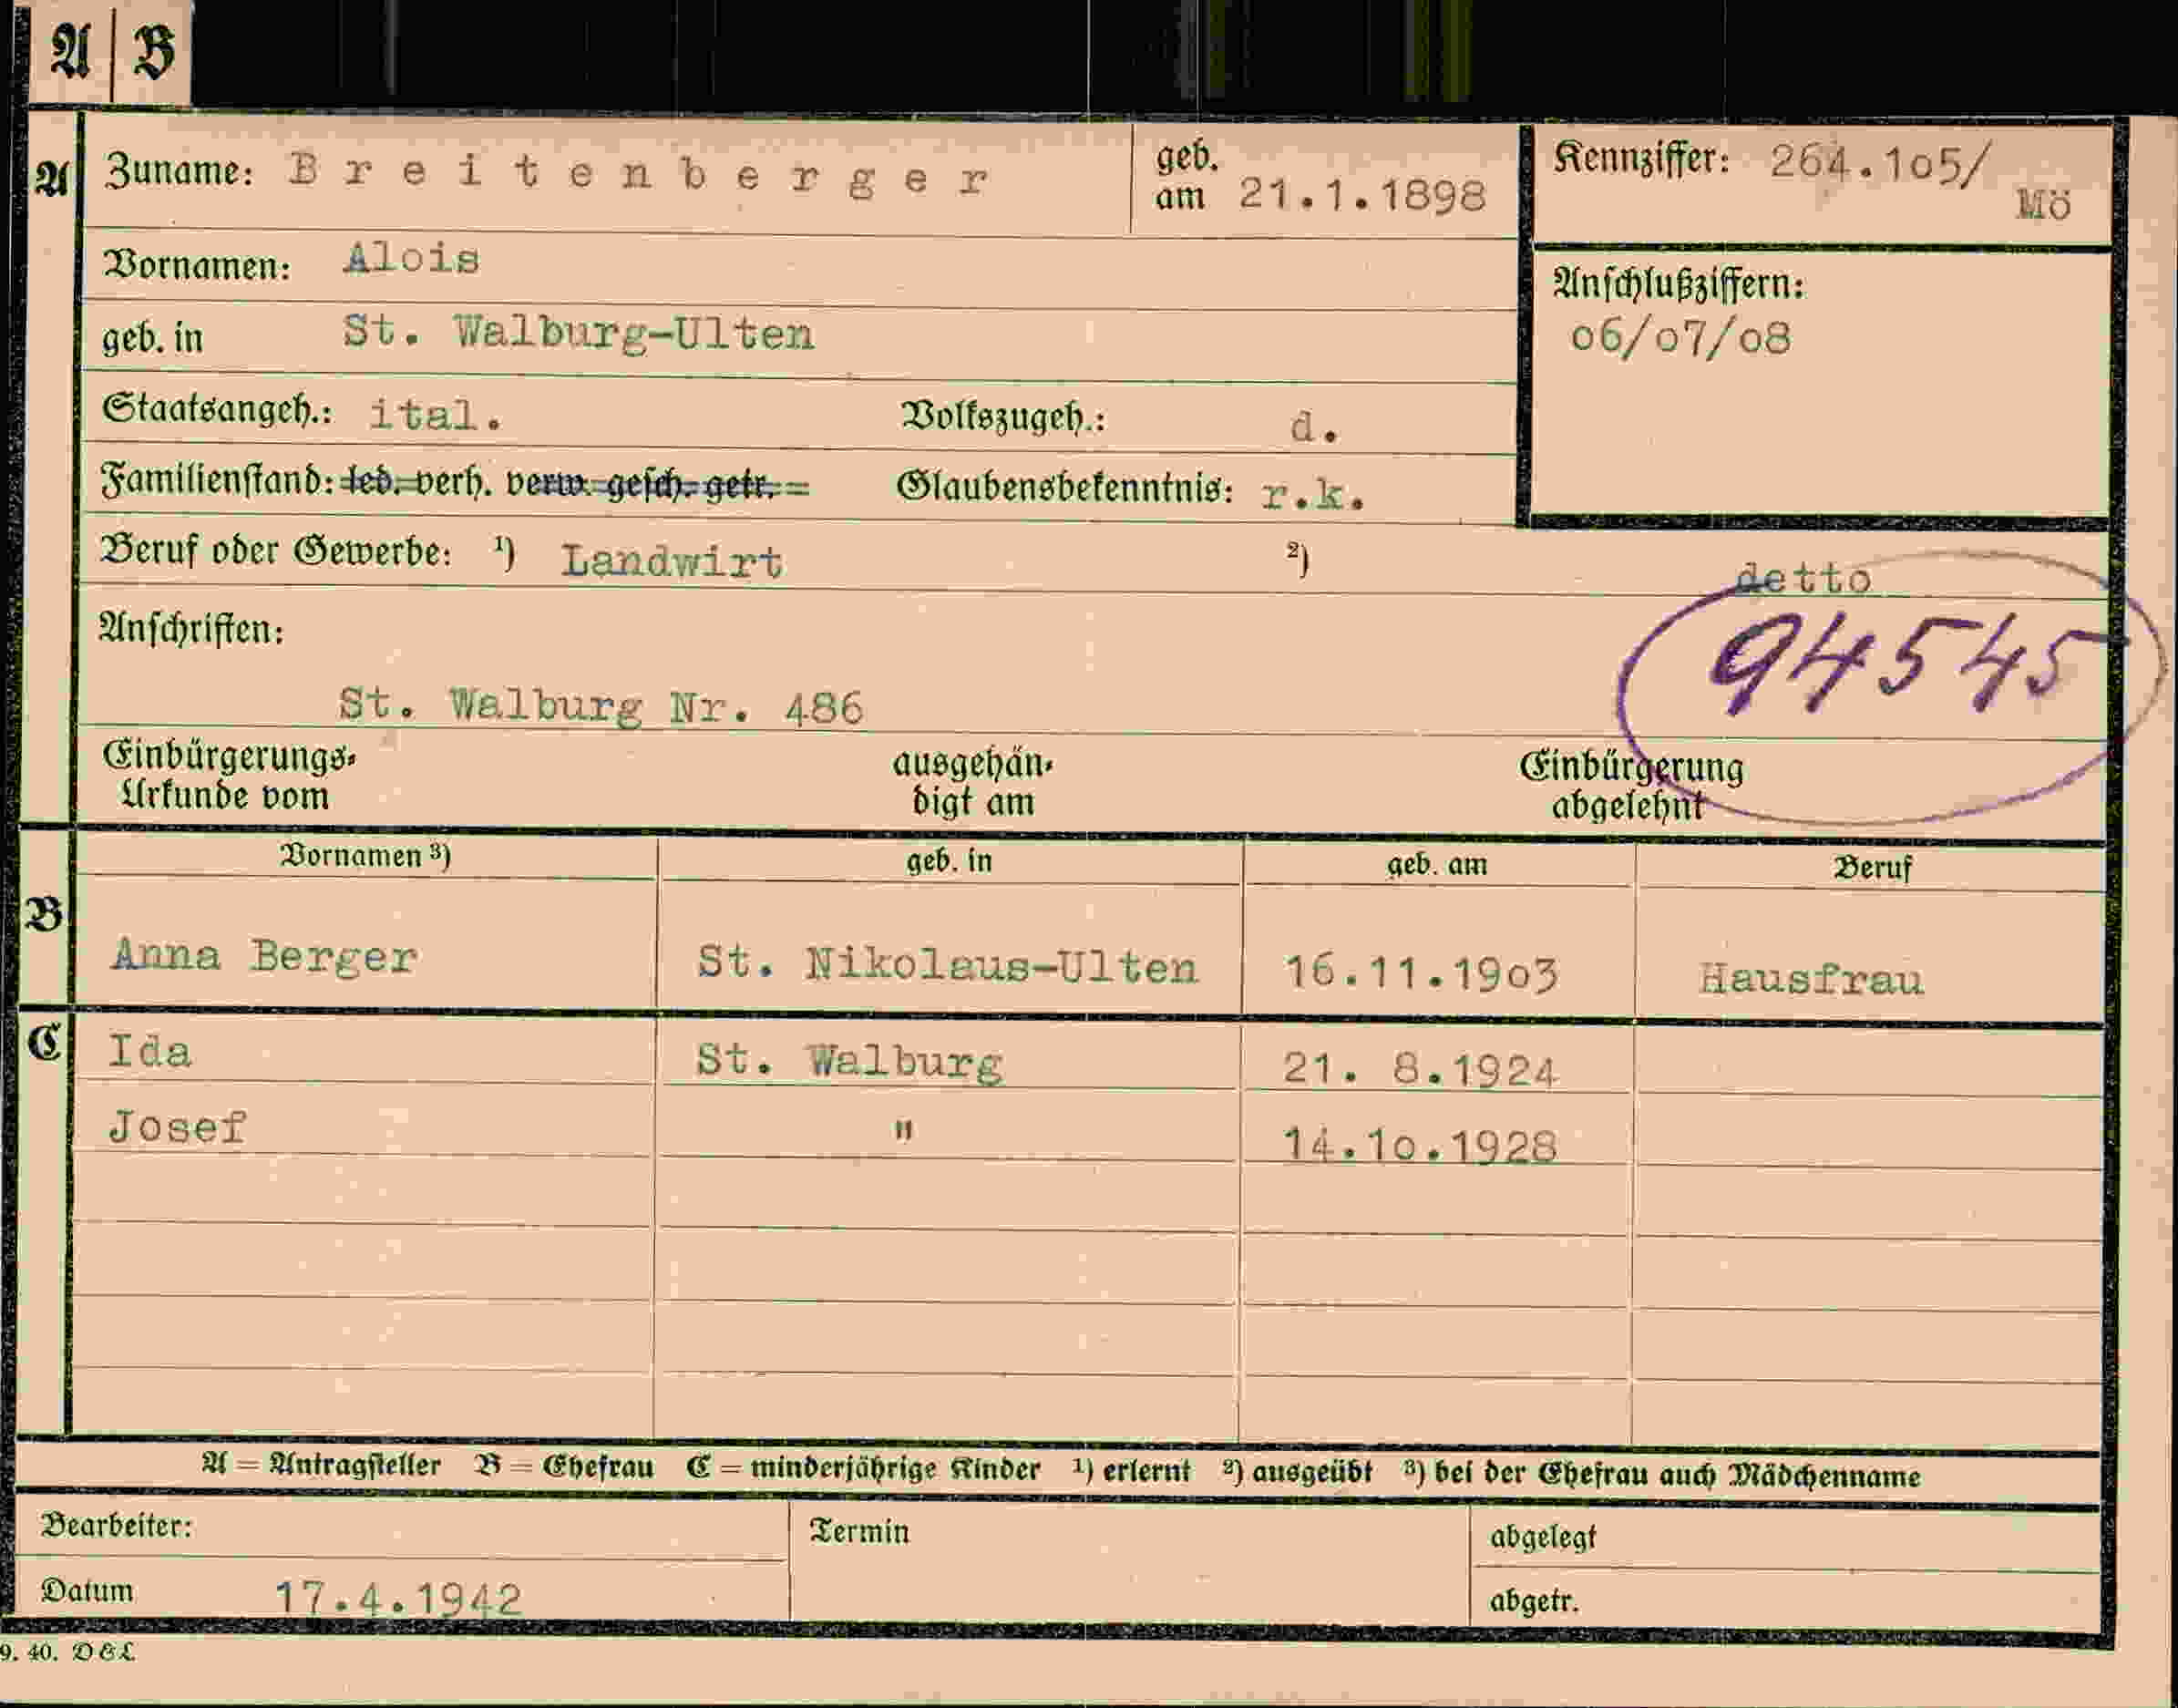 A | B
A Zuname: Breitenberger geb. am 21.1.1898 Kennziffer: 264.1o5/ Mö
Vornamen: Alois
Anschlußziffern:
geb. in St. Walburg-Ulten o6/o7/o8
Staatsangeh.: ital. Volkszugeh.: d.
Familienstand: led. verh. verw. gesch. getr. Glaubensbekenntnis: r.k.
Beruf oder Gewerbe: ¹) Landwirt ²) detto
Anschriften: 94545
St. Walburg Nr. 486
Einbürgerungs- ausgehän- Einbürgerung
Urkunde vom digt am abgelehnt
Vornamen ³) geb. in geb. am Beruf
B Anna Berger St. Nikolaus-Ulten 16.11.19o3 Hausfrau
C Ida St. Walburg 21. 8.1924
Josef " 14.1o.1928
A = Antragsteller B = Ehefrau C = minderjährige Kinder ¹) erlernt ²) ausgeübt ³) bei der Ehefrau auch Mädchenname
Bearbeiter: Termin abgelegt
Datum 17.4.1942 abgetr.
9. 40. D & L